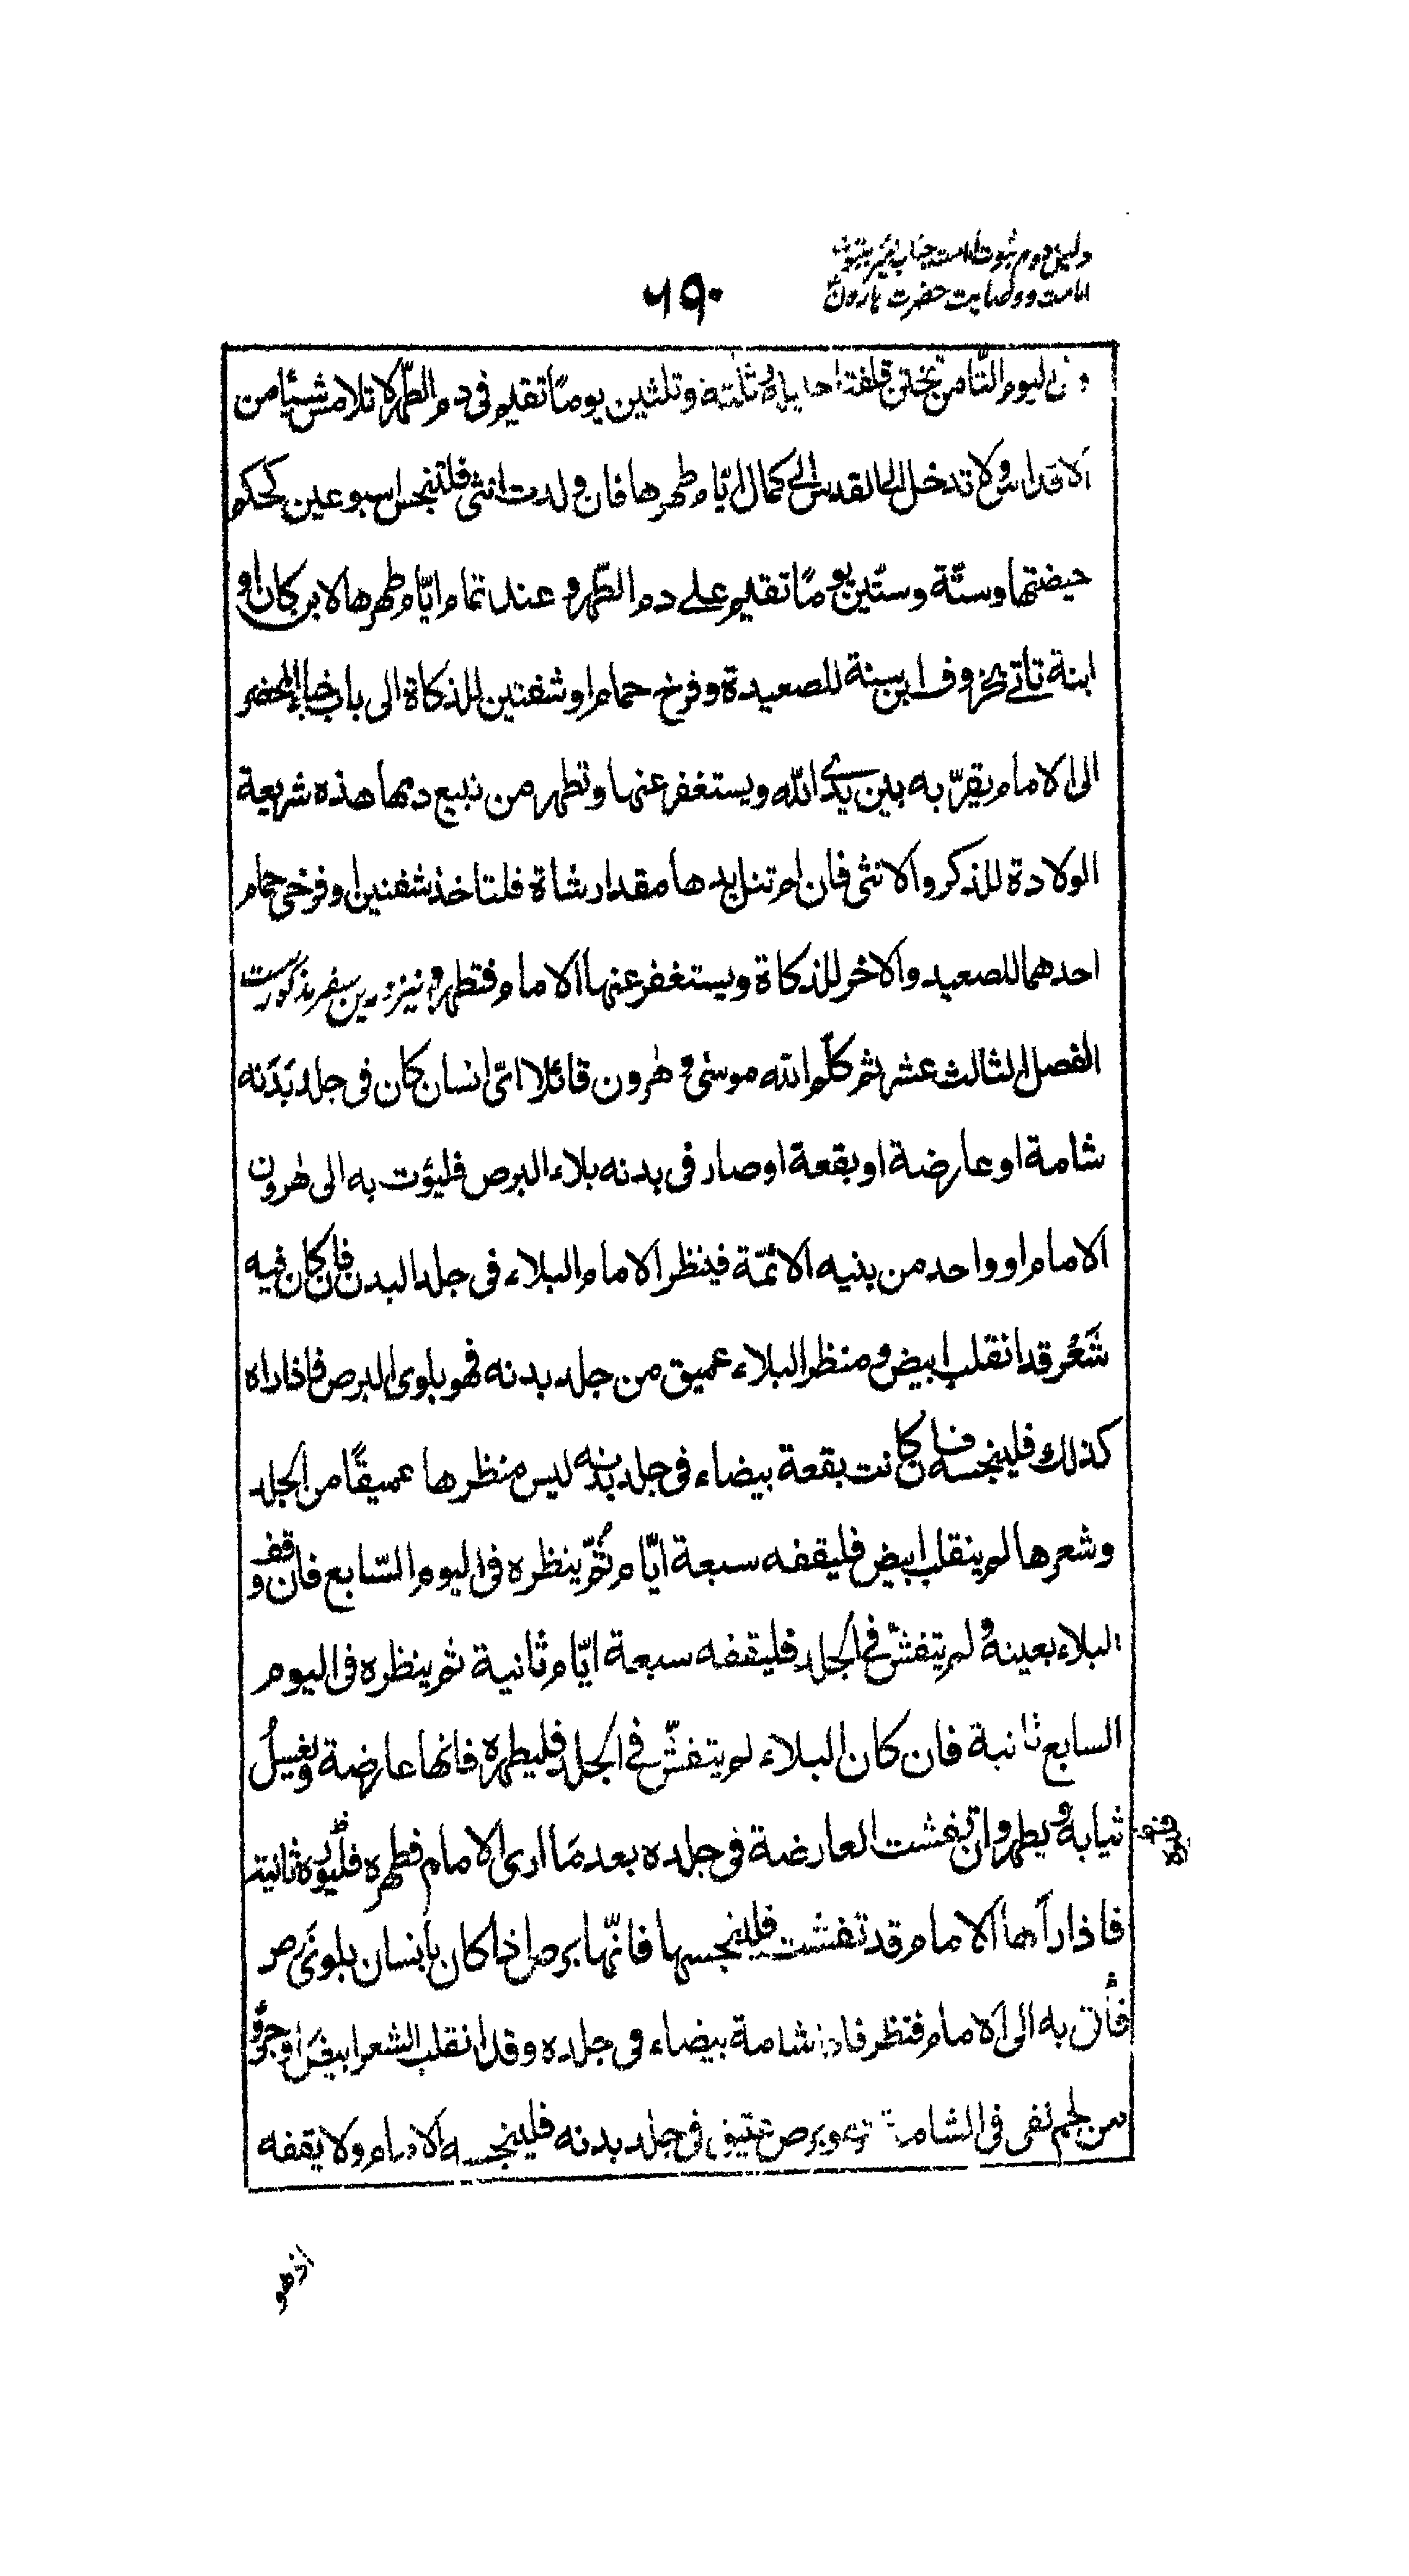 دلیل دوم ثبوت امامت جناب امیر بثبوت
امامت و وصایت حضرت هارون
۶۹۰
و فی الیوم الثامن تختن قلفة احلیله ثلثة وثلثین یومًا تقیم فی دم الطّهر لا تلامس شیئا من
الاقداس ولا تدخل الی القدس الی کمال ایّام طهرها فان ولدت انثی فلتنجس اسبوعین کحکم
حیضتها وستّة وستّین یومًا تقیم علی دم الطّهر و عند تمام ایّام طهرها لابن کان او
ابنة تاتی بخروف ابن سنة للصعیدة وفرخ حمام او شفنین للذکاة الی باب خباء المحضر
الی الامام یقرّبه بین یدی الله ویستغفر عنها وتطهر من نبیع دمها هذه شریعة
الولادة للذکر والانثی فان لم تنل یدها مقدار شاة فلتاخذ شفنین او فرخی حمام
احدهما للصعید والاخر للذکاة ویستغفر عنها الامام فتطهر و نیز درین سفر مذکورست
الفصل الثالث عشر ثم کلّم الله موسی و هرون قائلا ایّ انسان کان فی جلد بَدَنه
شامة او عارضة او بقعة او صار فی بدنه بلاء البرص فلیؤت به الی هرون
الامام او واحد من بنیه الائمّة فینظر الامام البلاء فی جلد البدن فان کان فیه
شَعْر قد انقلب ابیض و منظر البلاء عمیق من جلد بدنه فهو بلوی البرص فاذا راه
کذلك فلینجسه فان کانت بقعة بیضاء فی جلد بدنه لیس منظرها عمیقًا من الجلد
وشعرها لم ینقلب ابیض فلیقفه سبعة ایّام ثُمّ ینظره فی الیوم السّابع فان وقف
البلاء بعینه و لم یتفشّ فی الجلد فلیقفه سبعة ایّام ثانیة ثم ینظره فی الیوم
السابع ثانیة فان کان البلاء لم یتفشّ فی الجلد فلیطهره فانها عارضة ویغسل
ثیابه و یطهر وان تفشت العارضة فی جلده بعد مَا اری الامام فطهره فلیُرِه ثانیة
فاذا رآها الامام قد تفشت فلینجسها فانّها برص اذا کان بانسان بلوی برص
فأت به الی الامام فنظر فاذا شامة بیضاء فی جلده وقد انقلب الشعر ابیض او جرؤ
من لحم نقی فی الشامة فهو برص عتیق فی جلد بدنه فلینجسه الامام ولا یقفه
اذ هو